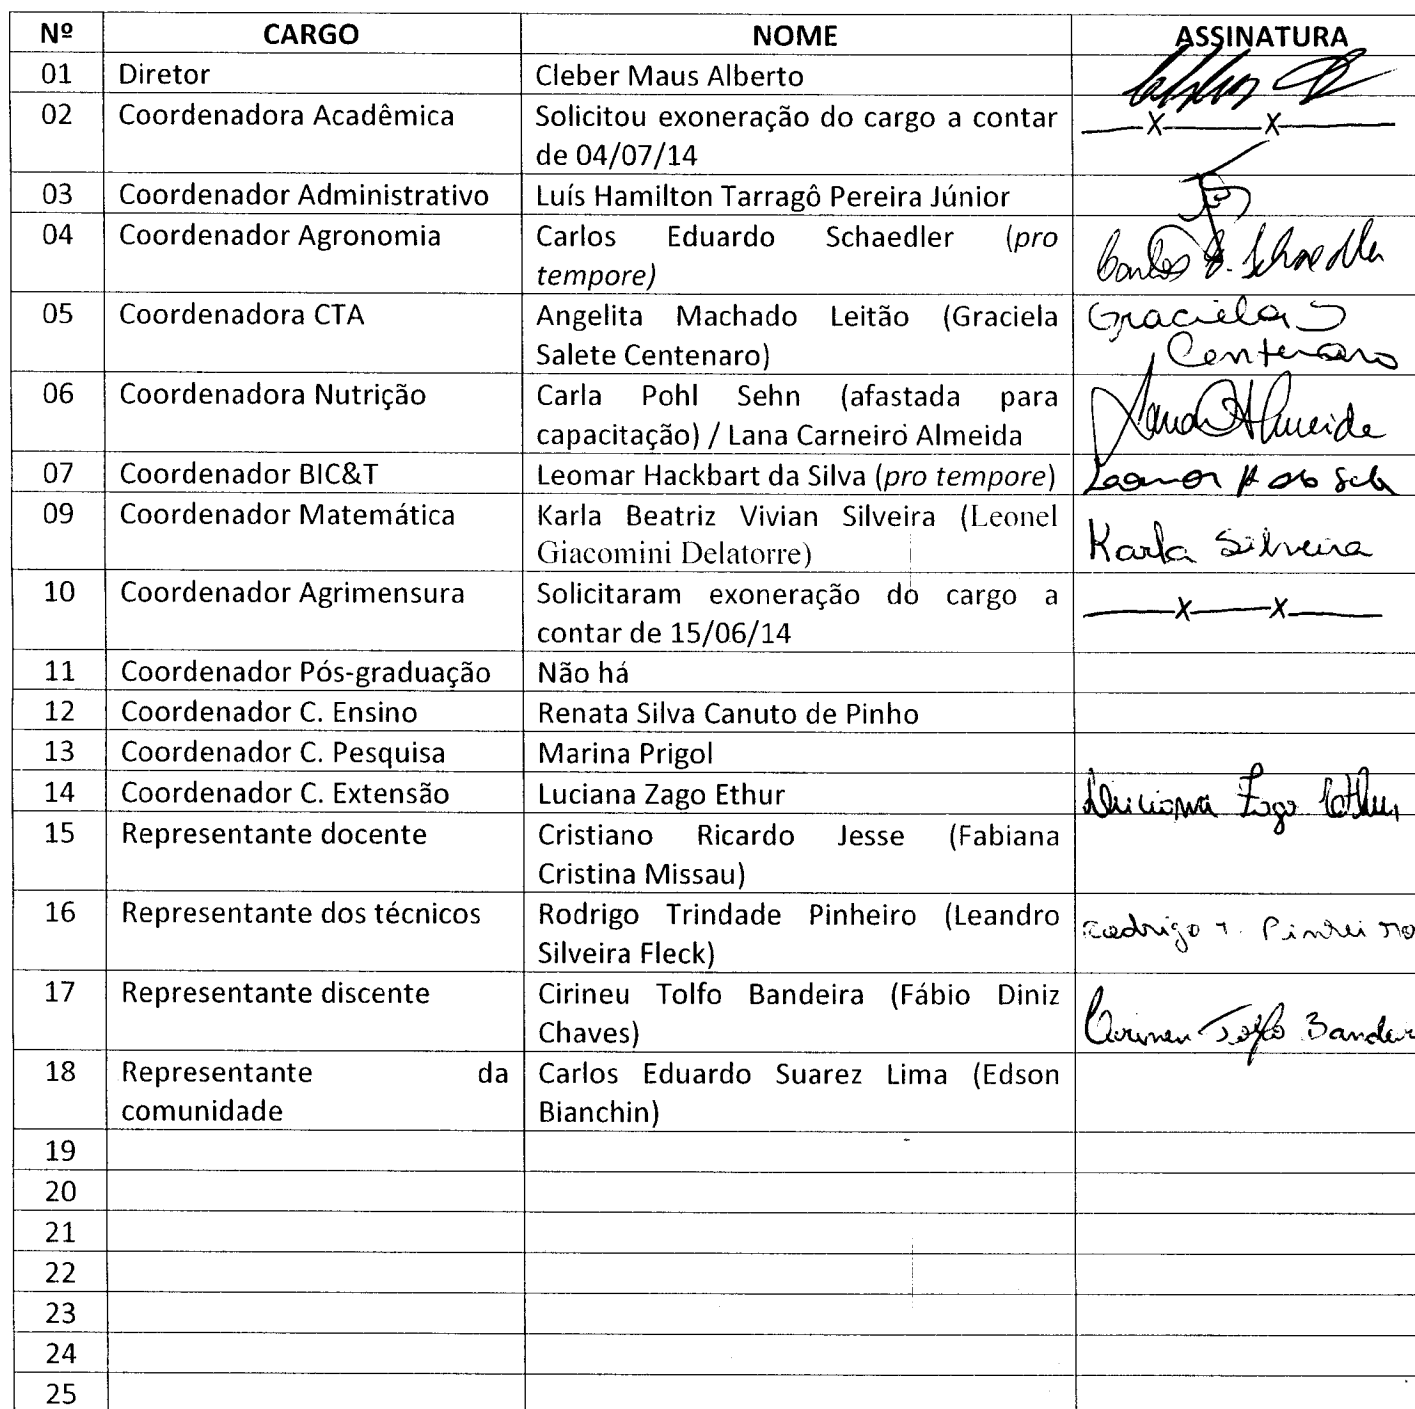 Nº CARGO NOME ASSINATURA
01 Diretor Cleber Maus Alberto
02 Coordenadora Acadêmica Solicitou exoneração do cargo a contar
de 04/07/14 ——X———X———
03 Coordenador Administrativo Luís Hamilton Tarragô Pereira Júnior
04 Coordenador Agronomia Carlos Eduardo Schaedler (pro
tempore) Carlos E. Schaedler
05 Coordenadora CTA Angelita Machado Leitão (Graciela
Salete Centenaro) Graciela S
Centenaro
06 Coordenadora Nutrição Carla Pohl Sehn (afastada para
capacitação) / Lana Carneiro Almeida Lana C Almeida
07 Coordenador BIC&T Leomar Hackbart da Silva (pro tempore) Leomar H da Silva
09 Coordenador Matemática Karla Beatriz Vivian Silveira (Leonel
Giacomini Delatorre) Karla Silveira
10 Coordenador Agrimensura Solicitaram exoneração do cargo a
contar de 15/06/14 ———X———X———
11 Coordenador Pós-graduação Não há
12 Coordenador C. Ensino Renata Silva Canuto de Pinho
13 Coordenador C. Pesquisa Marina Prigol
14 Coordenador C. Extensão Luciana Zago Ethur Luciana Zago Ethur
15 Representante docente Cristiano Ricardo Jesse (Fabiana
Cristina Missau)
16 Representante dos técnicos Rodrigo Trindade Pinheiro (Leandro
Silveira Fleck) Rodrigo T. Pinheiro
17 Representante discente Cirineu Tolfo Bandeira (Fábio Diniz
Chaves) Cirineu Tolfo Bandeir
18 Representante da Carlos Eduardo Suarez Lima (Edson
comunidade Bianchin)
19
20
21
22
23
24
25